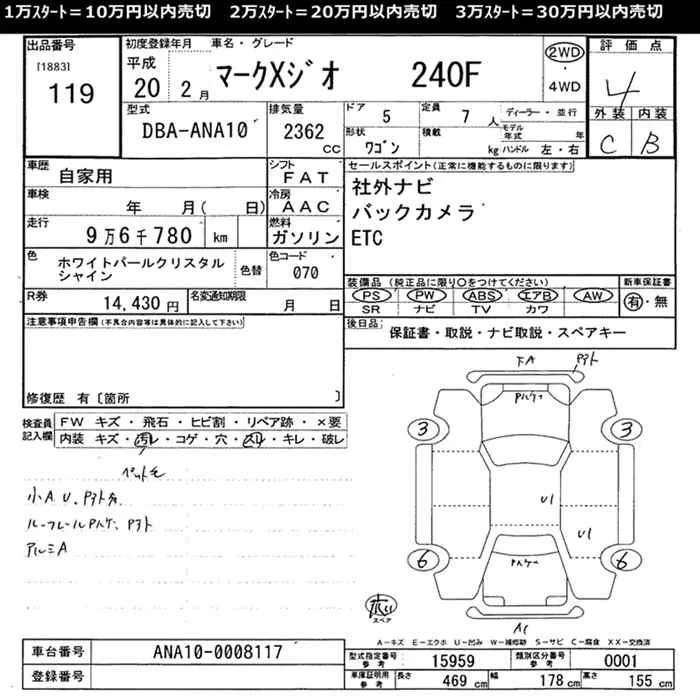 1万ｽﾀｰﾄ＝10万円以内売切　2万ｽﾀｰﾄ＝20万円以内売切　3万ｽﾀｰﾄ＝30万円以内売切
出品番号
[1883]
119
初度登録年月
平成
20 2 月
車名・グレード
マークXジオ 240F
2WD
・
4WD
評価点
4
外装 内装
C B
型式
DBA-ANA10
排気量
2362 CC
ドア 5
定員 7 人
ディーラー・並行
形状 ワゴン
積載 kg
モデル年式 年
ハンドル 左・右
車歴
自家用
シフト
FAT
車検
年 月( 日)
冷房
AAC
走行
9万6千780 km
燃料
ガソリン
色
ホワイトパールクリスタル
シャイン
色替
色コード
070
R券
14,430 円
名変通知期限
月 日
セールスポイント(正常に機能するものに限ります)
社外ナビ
バックカメラ
ETC
装備品 (純正品に限り○をつけてください)
PS PW ABS エアB AW
SR ナビ TV カワ
新車保証書
有・無
後日品
保証書・取説・ナビ取説・スペアキー
注意事項申告欄(不具合内容等は具体的に記入して下さい)
修復歴 有〔箇所 〕
検査員
記入欄
FW キズ・飛石・ヒビ割・リペア跡・×要
内装 キズ・汚レ・コゲ・穴・スレ・キレ・破レ
小A U、
アルミA
下A
3 3
U1
U1
6 6
A1
スペア
A－キズ E－エクボ U－凹み W－補修跡 S－サビ C－腐食 XX－交換済
車台番号
ANA10-0008117
登録番号
型式指定番号
参考
15959
類別区分番号
参考
0001
車庫証明用
参考
長さ 469 cm
幅 178 cm
高さ 155 cm